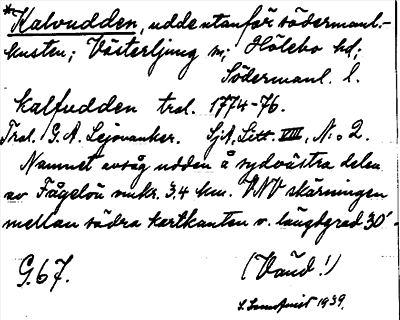 *Kalvudden, udde utanför södermanl.-
kusten; Västerljung sn; Hölebo hd;
Södermanl. l.
Kalfudden tral. 1774-76.
Tral. G. A. Lejonanker. SjA, Litt. VIII, N:o 2.
Namnet avsåg udden å sydvästra delen
av Fågelön omkr. 3,4 km. VNV skärningen
mellan södra kartkanten o. längdgrad 30' -
G. 67. (Vänd!)
1939.